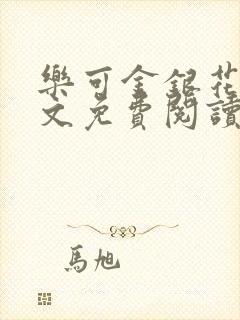 樂可金銀花
文免費閱讀
馬旭